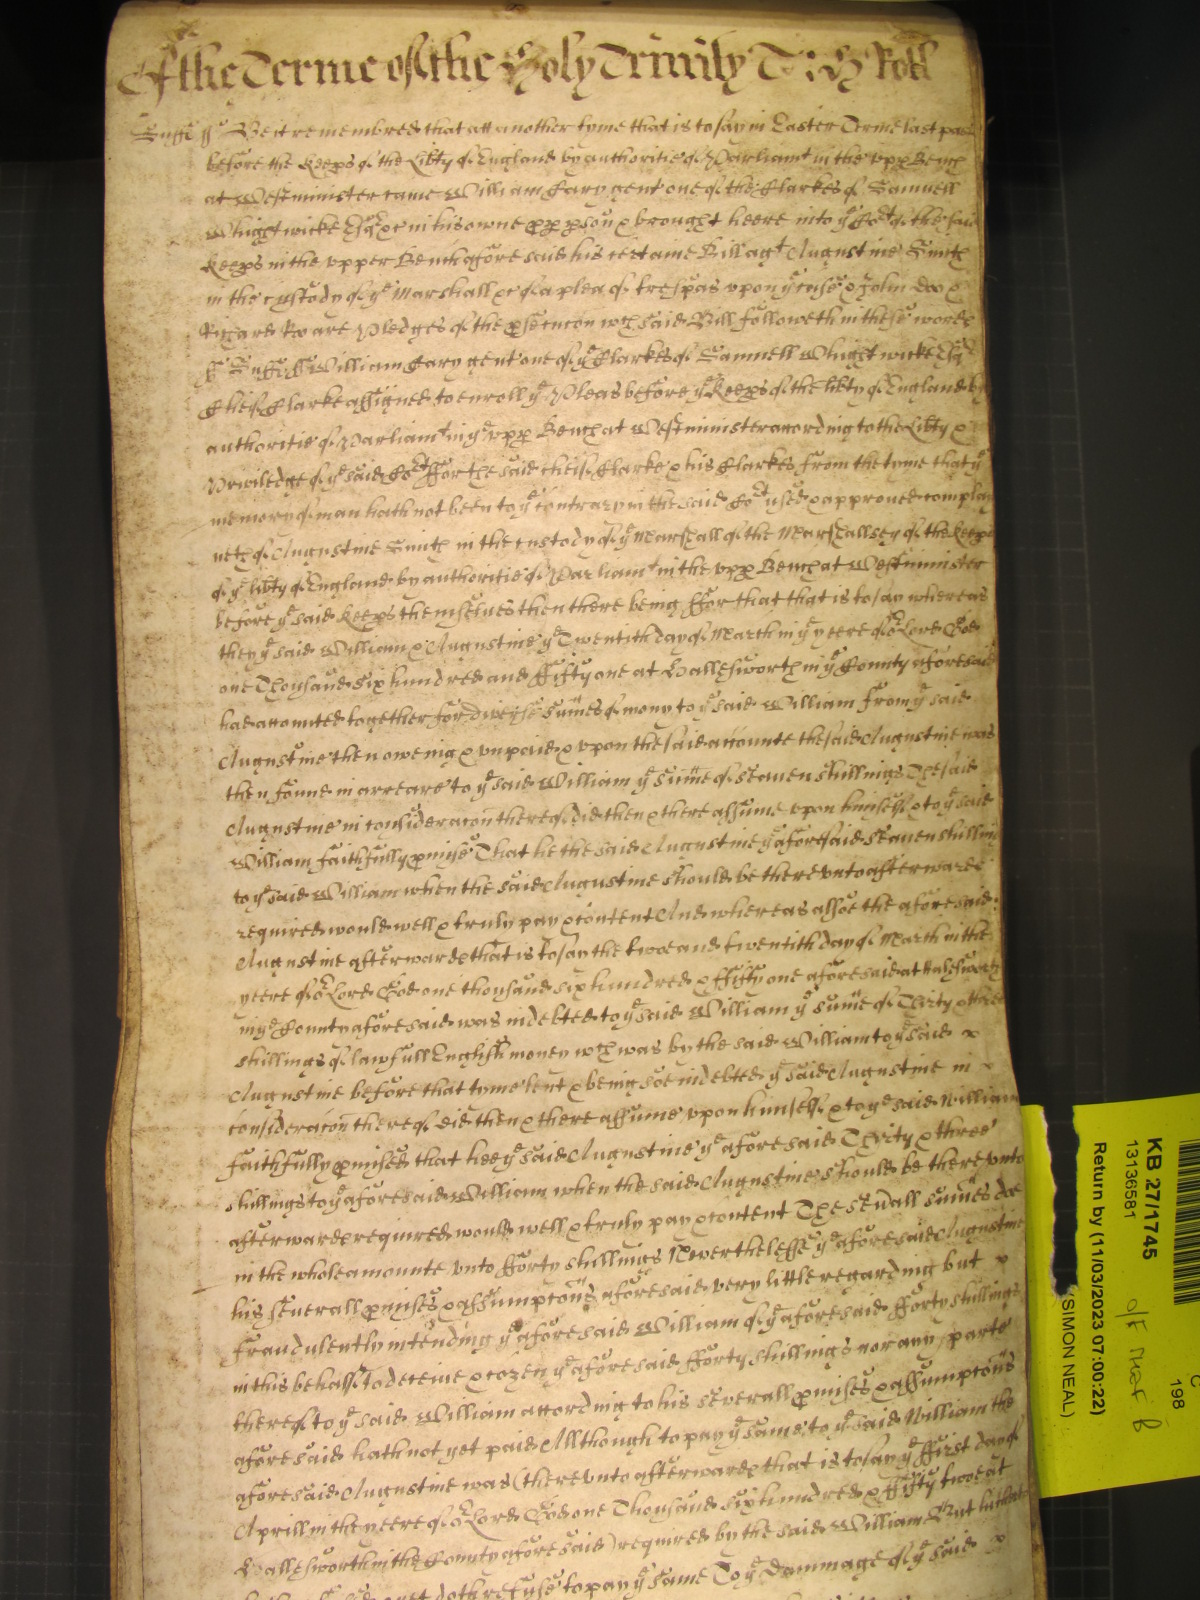 Of the Terme of the Holy Trinity
Suff ss Be it remembred that att another tyme that is to say in Easter Terme last past
before the Keeps of the Libty of England by authoritie of Parliamt in the vpp Bench
at Westminister came William Cary gent one of the Clarkes of Samuell
Whightwicke Esqr &c in his owne pp pson & brought heere into ye Cort of the said
Keeps in the vpper Bench aforesaid his certaine Bill agt Augustine Smith
in the custody of ye Marshall &c of a plea of trespas vpon ye case & John Doo &
Richard Roo are Pledges of the psecucon wch said Bill followeth in these words
ss Suff ss William Cary gent one of ye Clarkes of Samuell Whightwicke Esqr
Cheif Clarke assigned to enroll ye Pleas before ye Keeps of the libty of England by
authoritie of Parliamt in ye vpp Bench at Westminister according to the Libty &
Priviledge of ye said Cort ffor the said cheif Clarke & his Clarkes from the tyme that ye
memory of man hath not been to ye contrary in the said Cort used & approued complai
neth of Augustine Smith in the custody of ye Marshall of the Marshallsey of the Keeps
of ye libty of England by authoritie of Parliamt in the vpp Bench at Westminister
before ye said Keeps themselues then there being ffor that that is to say whereas
they ye said William & Augustine ye Twentith day of March in ye yeere of or Lord God
one Thousand six hundred and ffifty one at Hallesworth in ye County aforesaid
had accounted together for diverse sumes of mony to ye said William from ye said
Augustine then oweing & vnpaid & vpon the said accounte the said Augustine was
then found in arreare to ye said William ye sume of seauen shillings The said
Augustine in consideracon thereof did then & there assume vpon himself & to ye said
William faithfully pmise That he the said Augustine ye aforesaid seauen shillings
to ye said William when the said Augustine should be therevnto afterwards
required would well & truly pay & content And whereas alsoe the aforesaid
Augustine afterwards that is to say the twoe and twentith day of March in the
yeere of or Lord God one thousand six hundred & ffifty one aforesaid at Halesworth
in ye County aforesaid was indebted to ye said William ye sume of Thirty & three
shillings of lawfull English money wch was by the said William to ye said x
Augustine before that tyme lent & being soe indebted ye said Augustine in
consideracon thereof did then & there assume vpon himself & to ye said William
faithfully pmised that hee ye said Augustine ye aforesaid Thirty & three
shillings to ye aforesaid William when the said Augustine should be therevnto
afterwards required would well & truly pay & content The seuall sumes doe
in the whole amounte vnto fforty shillings Nevertheless ye aforesaid Augustine
his severall pmises & assumptons aforesaid very little regarding but x
fraudulently intending ye aforesaid William of ye aforesaid fforty shillings
in this behalf to deceiue & cozen ye aforesaid fforty shillings nor any parte
thereof to ye said William according to his severall pmises & assumptons
aforesaid hath not yet paid Allthough to pay ye same to ye said William the
aforesaid Augustine was (therevnto afterwards that is to say ye ffirst day of
Aprill in the yeere of or Lord God one Thousand six hundred & ffifty twoe at
Hallesworth in the County aforesaid) required by the said William But hitherto
doth refuse to pay ye same To ye Dammage of ye said x
KB 27/1745
13136581
Return by (11/03/2023 07:00:22)
(SIMON NEAL)
198